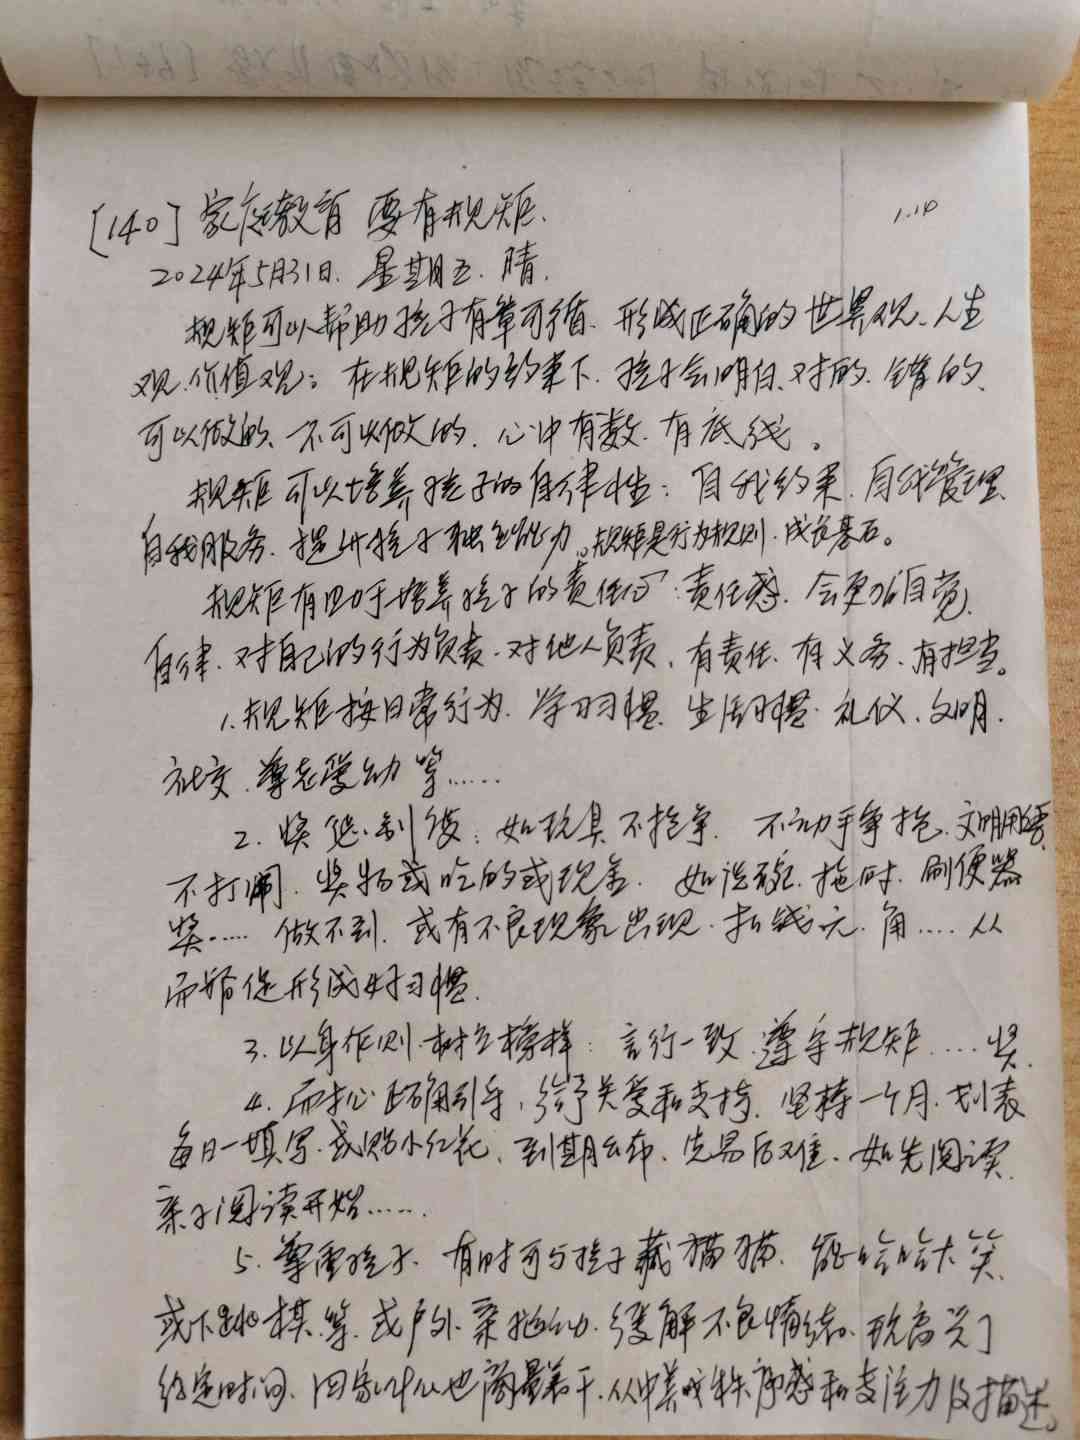 [140] 家庭教育 要有规矩.
1.10
2024年5月31日. 星期五. 晴.
规矩可以帮助孩子有章可循. 形成正确的世界观、人生
观、价值观; 在规矩的约束下. 孩子会明白、对的. 错的、
可以做的、不可以做的. 心中有数. 有底线。
规矩可以培养孩子的自律性: 自我约束. 自我管理.
自我服务. 提升孩子独立能力。规矩是行为规则. 成长基石。
规矩有助于培养孩子的责任心: 责任感. 会更加自觉.
自律. 对自己的行为负责. 对他人负责. 有责任. 有义务. 有担当。
1. 规矩按日常行为. 学习习惯. 生活习惯. 礼仪. 文明.
社交. 尊老爱幼 等……
2. 奖惩制度: 如玩具不抢争. 不动手争抢. 文明用语.
不打闹. 奖物或吃的或现金. 如洗碗. 拖地. 刷便器
奖…… 做不到. 或有不良现象出现. 扣钱元. 角…… 从
而督促形成好习惯.
3. 以身作则. 树立榜样: 言行一致. 遵守规矩 …… 奖.
4. 耐心正确引导, 给予关爱和支持. 坚持一个月. 划表
每日一填写. 或贴小红花. 到期公布. 先易后难. 如先阅读.
亲子阅读开始……
5. 尊重孩子. 有时可与孩子藏猫猫. 逗哈哈大笑.
或下跳棋 等. 或户外亲子活动. 缓解不良情绪.
约定时间. 回家 也商量着干. 从中养成秩序感和专注力及描述。